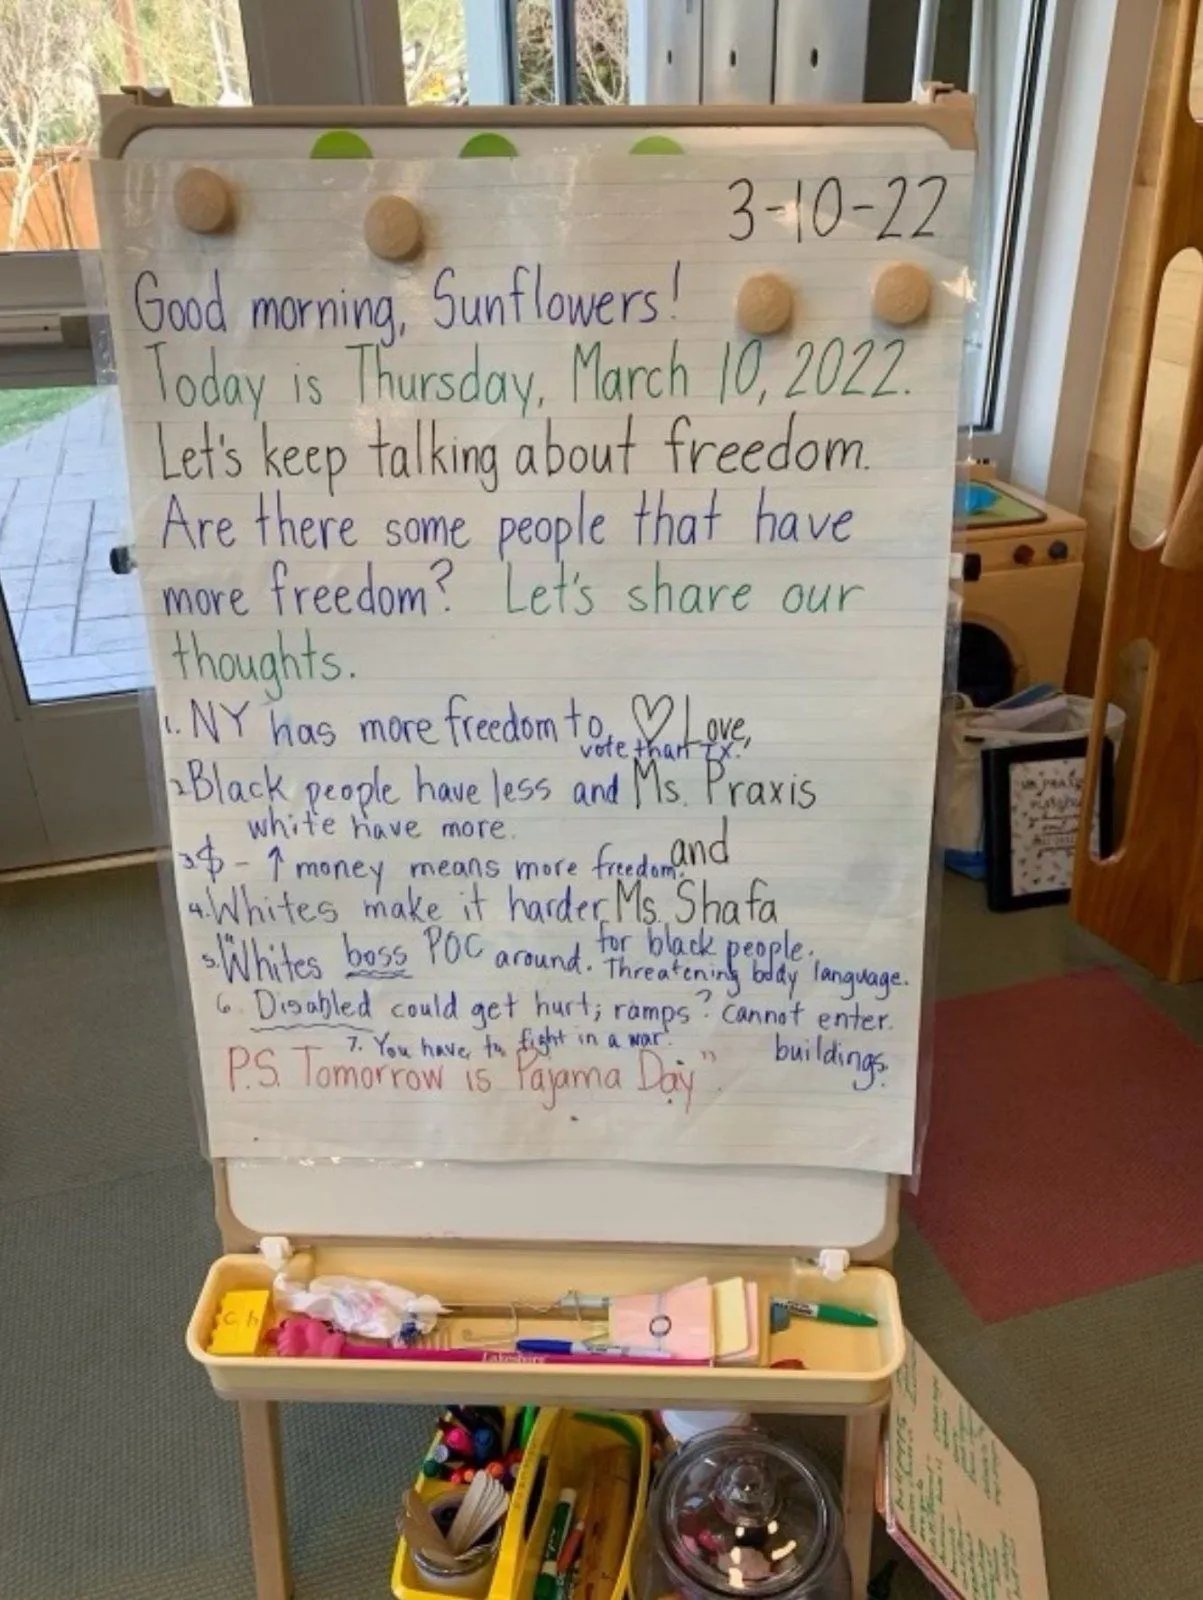 3-10-22
Good morning, Sunflowers!
Today is Thursday, March 10, 2022.
Let's keep talking about freedom.
Are there some people that have
more freedom? Let's share our
thoughts.
1. NY has more freedom to
vote than TX.
♡ Love,
2. Black people have less and
white have more.
Ms. Praxis
3. $ - ↑ money means more freedom.
and
4. Whites make it harder
for black people.
Ms. Shafa
5. "Whites boss POC around. Threatening body language.
6. Disabled could get hurt; ramps? cannot enter
buildings.
7. You have to fight in a war."
P.S. Tomorrow is Pajama Day.
ch
O
Lakeshore